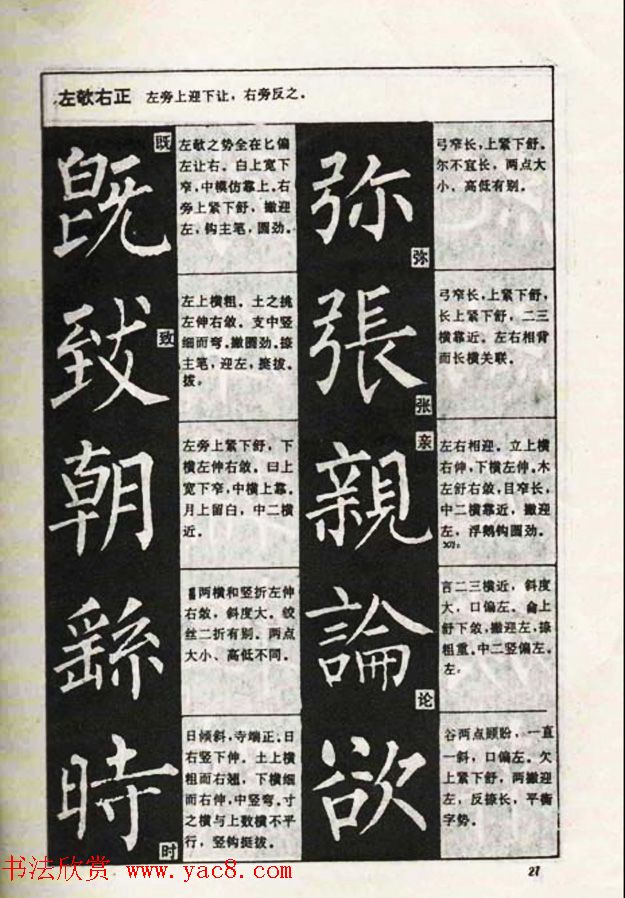 左欹右正 左旁上迎下让，右旁反之。
既
左欹之势全在匕偏
左让右。白上宽下
窄，中横仿靠上。右
旁上紧下舒，撇迎
左，钩主笔，圆劲。
致
左上横粗。土之挑
左伸右敛。支中竖
细而弯。撇圆劲。捺
主笔，迎左，挺拔。
拔。
朝
左旁上紧下舒，下
横左伸右敛。曰上
宽下窄，中横上靠。
月上留白，中二横
近。
繇
两横和竖折左伸
右敛，斜度大。绞
丝二折有别。两点
大小、高低不同。
時
时
日倾斜，寺端正。日
右竖下伸。土上横
粗而右翘，下横细
而右伸，中竖弯。寸
之横与上数横不平
行，竖钩挺拔。
弥
弥
弓窄长，上紧下舒。
尔不宜长，两点大
小、高低有别。
張
张
弓窄长，上紧下舒，
长上紧下舒，二三
横靠近。左右相背
而长横关联。
親
亲
左右相迎。立上横
右伸，下横左伸。木
左舒右敛，目窄长，
中二横靠近，撇迎
左，浮鹅钩圆劲。
論
论
言二三横近，斜度
大，口偏左。侖上
舒下敛，撇迎左，捺
粗重。中二竖偏左。
左。
欲
谷两点顾盼，一直
一斜，口偏左。欠
上紧下舒，两撇迎
左，反捺长，平衡
字势。
书法欣赏 www.yac8.com
27